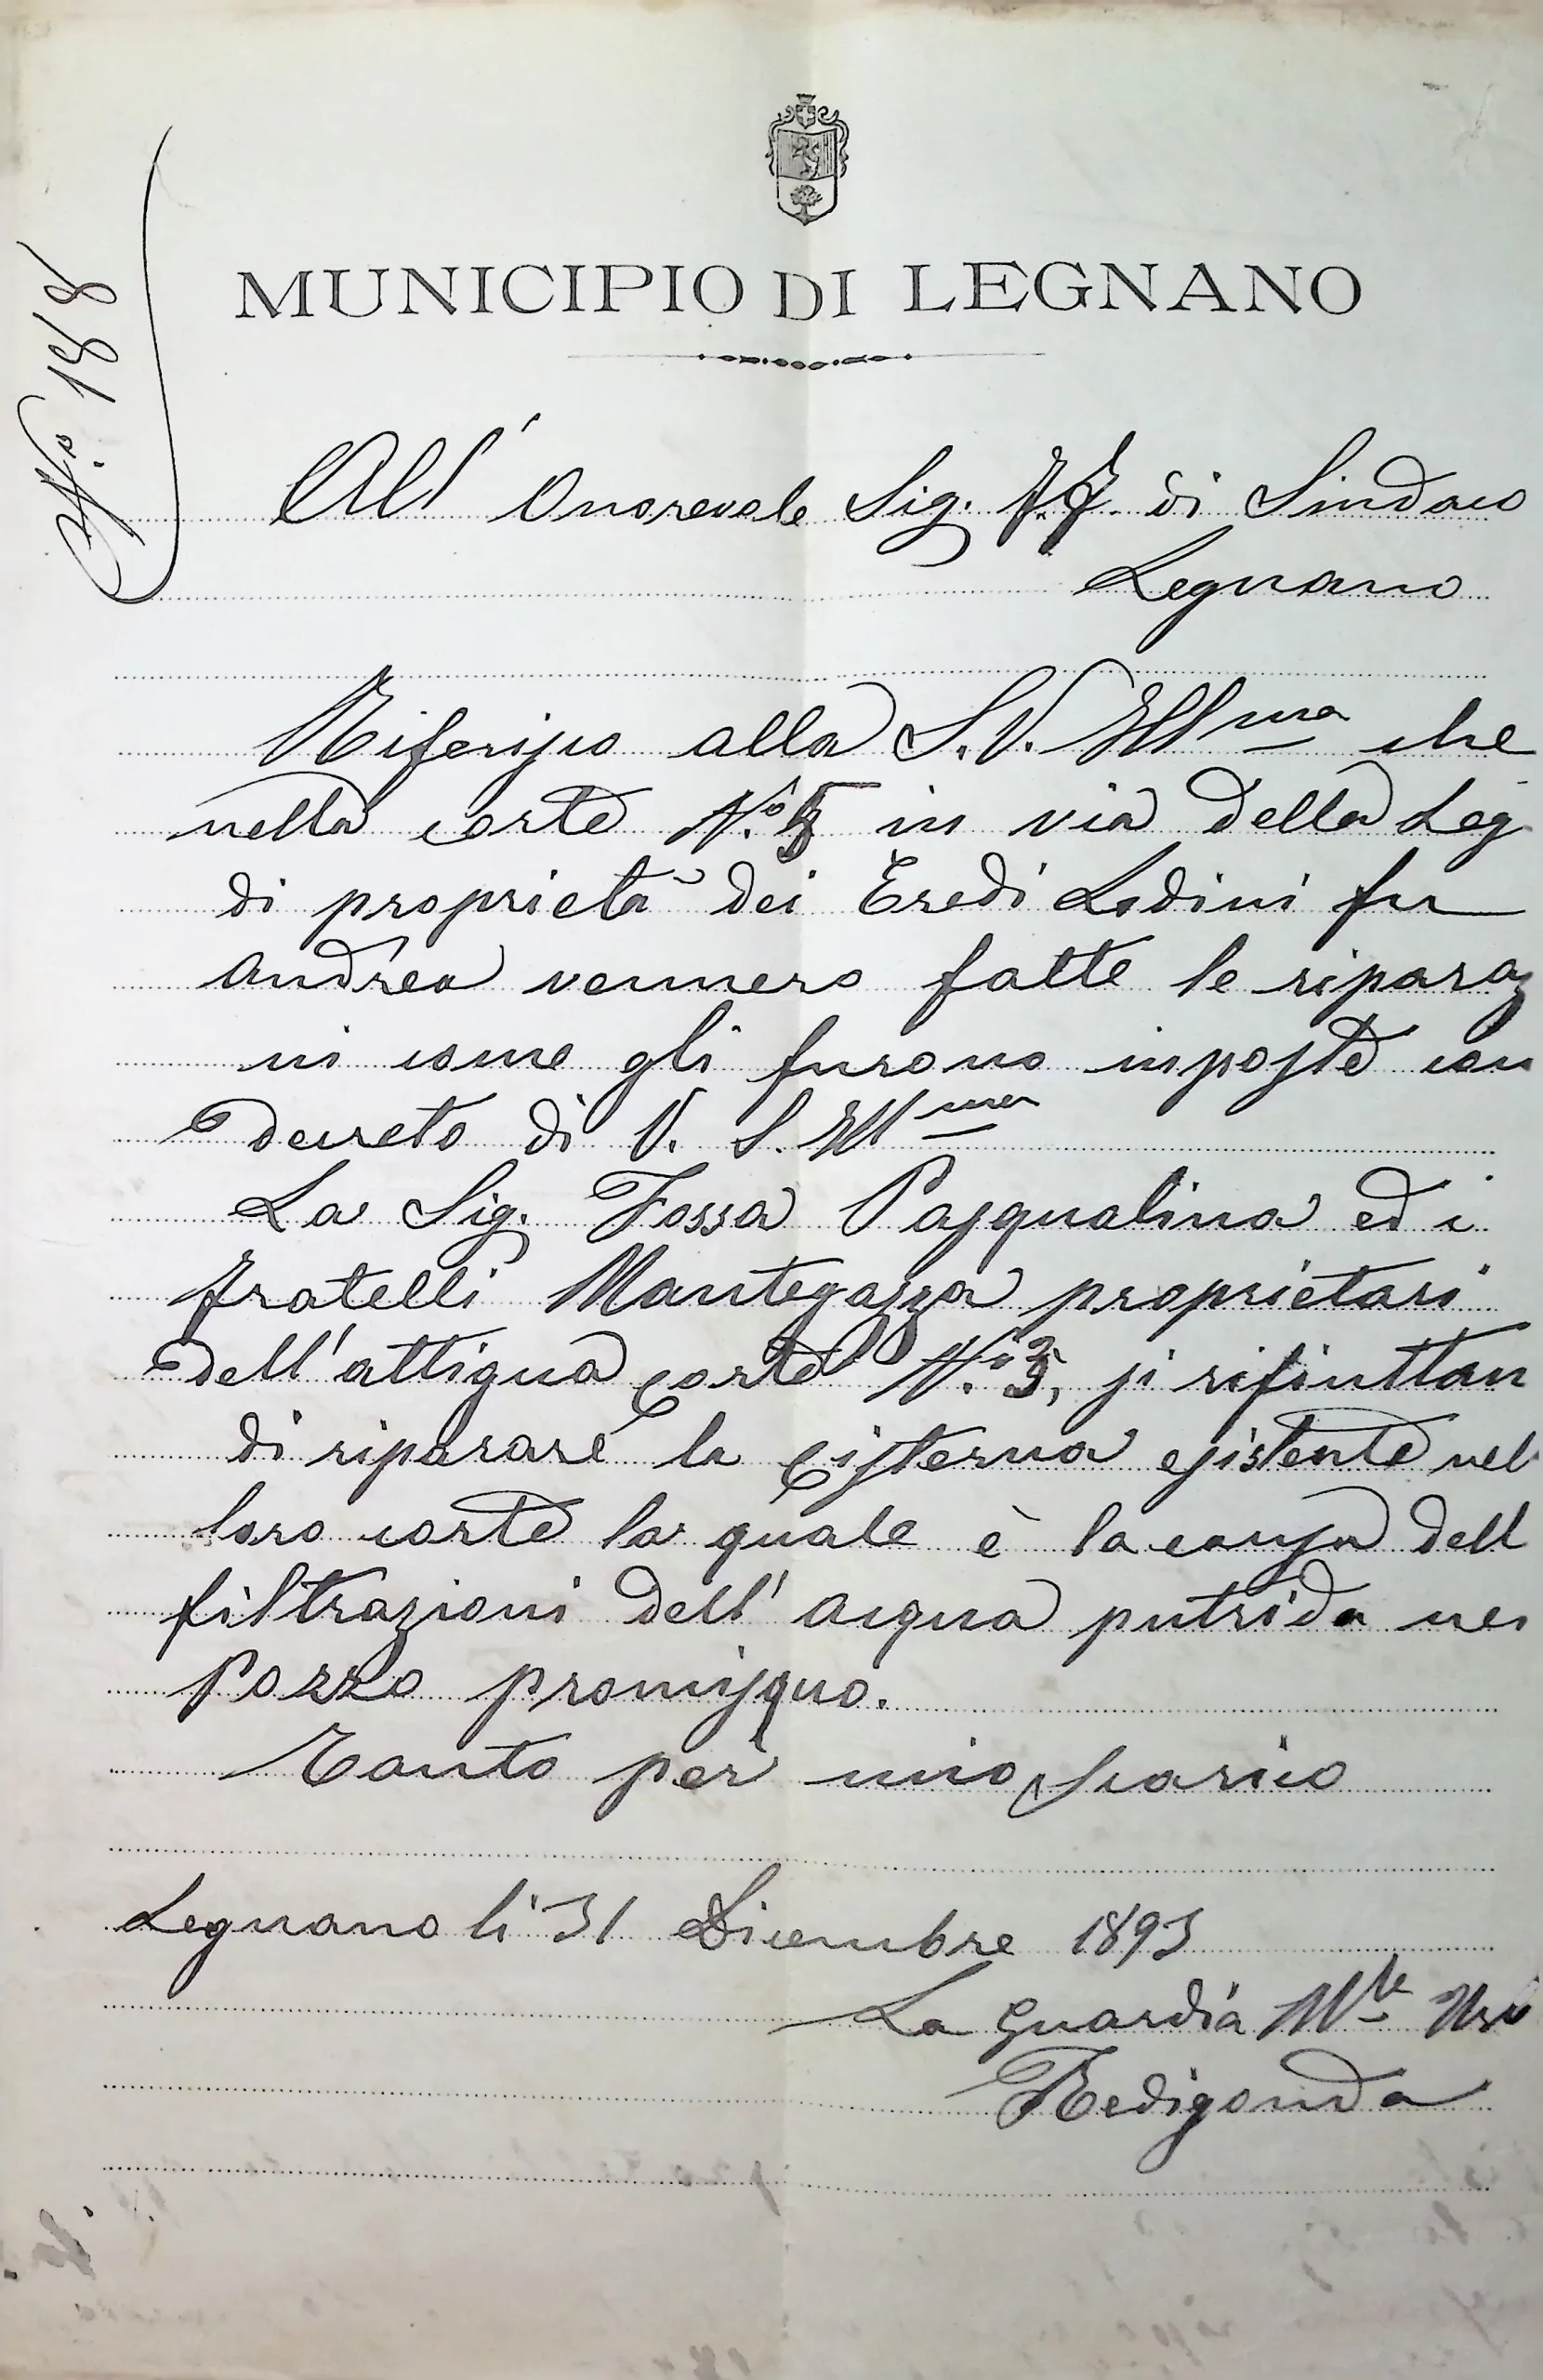 N.o 1818
MUNICIPIO DI LEGNANO
All' Onorevole Sig. F.F. di Sindaco
Legnano
Riferisco alla S.V. Ill ma che
nella corte N.o 5 in via della Leg
di proprietà dei Eredi Lodini fu
Andrea vennero fatte le riparaz
ni come gli furono imposte con
Decreto di V. S. Ill ma
La Sig. Fossa Pasqualina ed i
fratelli Mantegazza proprietari
dell'attigua corte N.o 3, si rifiuttan
di riparare la Cisterna esistente nel
loro corte la quale è la causa dell
filtrazioni dell' acqua putrida nei
Pozzo promisquo.
Tanto per mio scarico
Legnano li 31 Dicembre 1893
La Guardia M.le
Redigonda